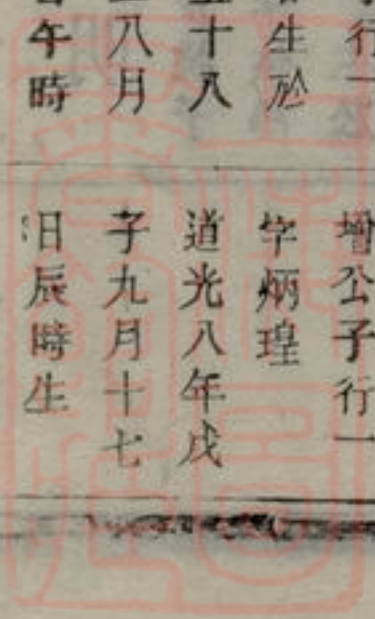 行一
生於
十八
八月
午時
增公子行一
字炳瑝
道光八年戊
子九月十七
日辰時生